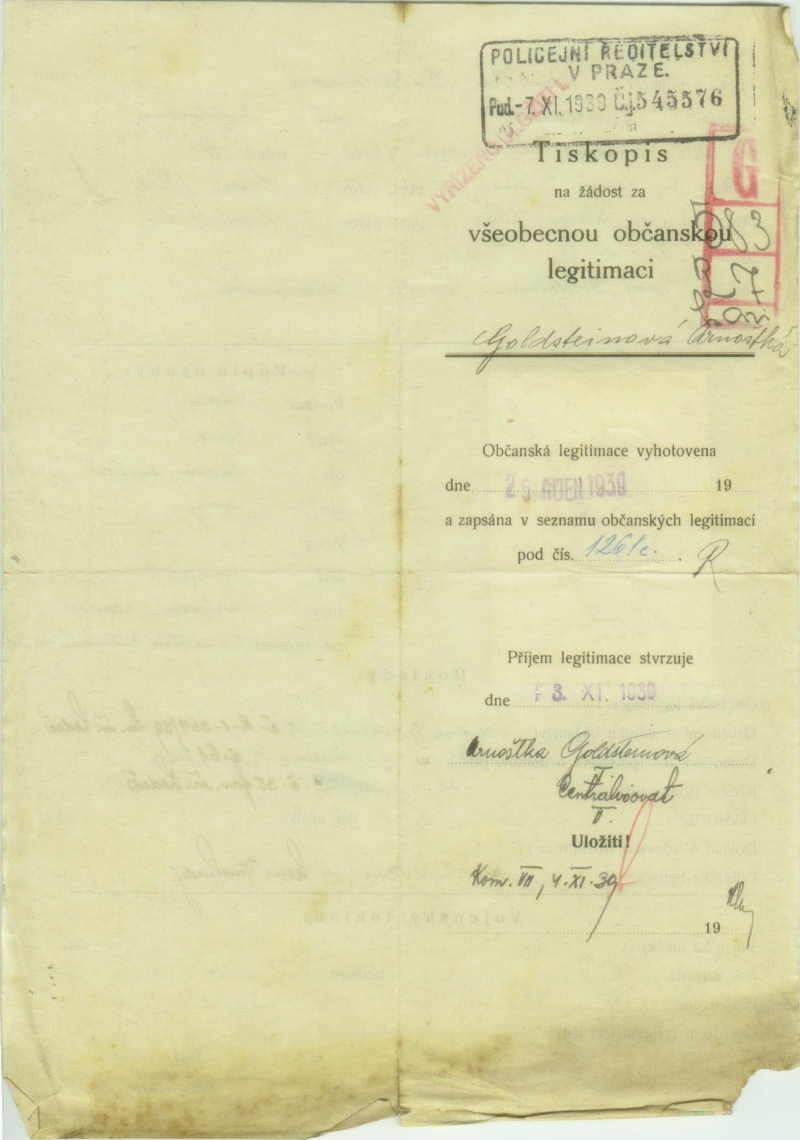 POLICEJNÍ ŘEDITELSTVÍ
V PRAZE.
Pod.-7. XI. 1939 Čj. 545576
Tiskopis
G
na žádost za
83
všeobecnou občanskou
legitimaci
Goldsteinová Arnoštka
Občanská legitimace vyhotovena
dne 25 ŘÍJEN 1939 19
a zapsána v seznamu občanských legitimací
pod čís. 1261/c. R
Příjem legitimace stvrzuje
dne 3. XI. 1939
Arnoštka Goldsteinová
I.
Centralisovat
II.
Uložiti!
Kom. VII, 4. XI. 39
19